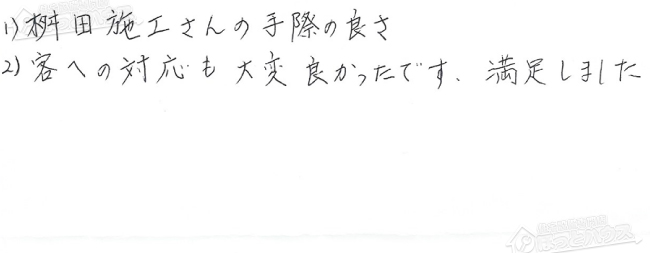 1) 桝田施工さんの手際の良さ
2) 客への対応も大変良かったです、満足しました